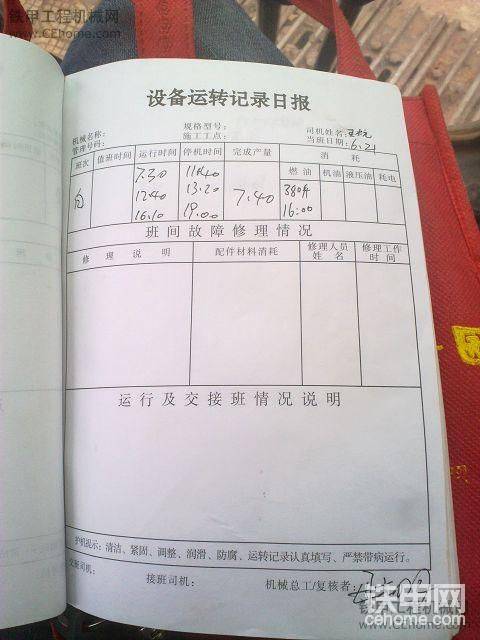 铁甲工程机械网
www.CEhome.com
设备运转记录日报
机械名称： 规格型号： 司机姓名：
管理号码： 施工工点： 当班日期：6.21
班次 值班时间 运行时间 停机时间 完成产量 消耗
燃油 机油 液压油 耗电
7.30 11.40 380升
12.40 13.20 7.40 16:00
16.10 19.00
班间故障修理情况
修理说明 配件材料消耗 修理人员姓名 修理工作时间
运行及交接班情况说明
护机提示：清洁、紧固、调整、润滑、防腐、运转记录认真填写、严禁带病运行。
交班司机： 接班司机： 机械总工/复核者：
铁甲网
cehome.com
铁甲工程机械网
www.CEhome.com